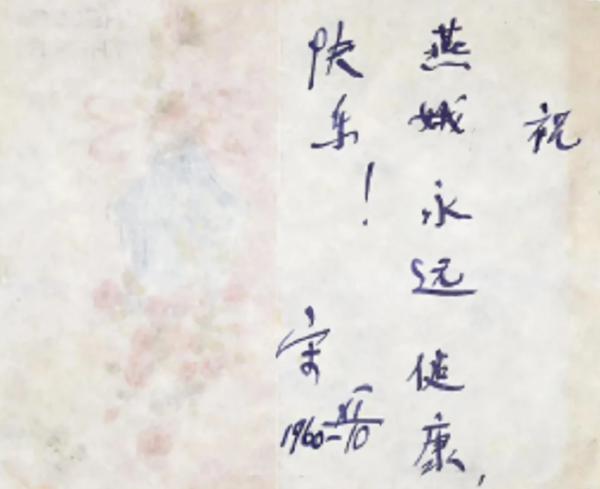 祝
燕娥永远健康,
快乐!
宋
1960-XI/10